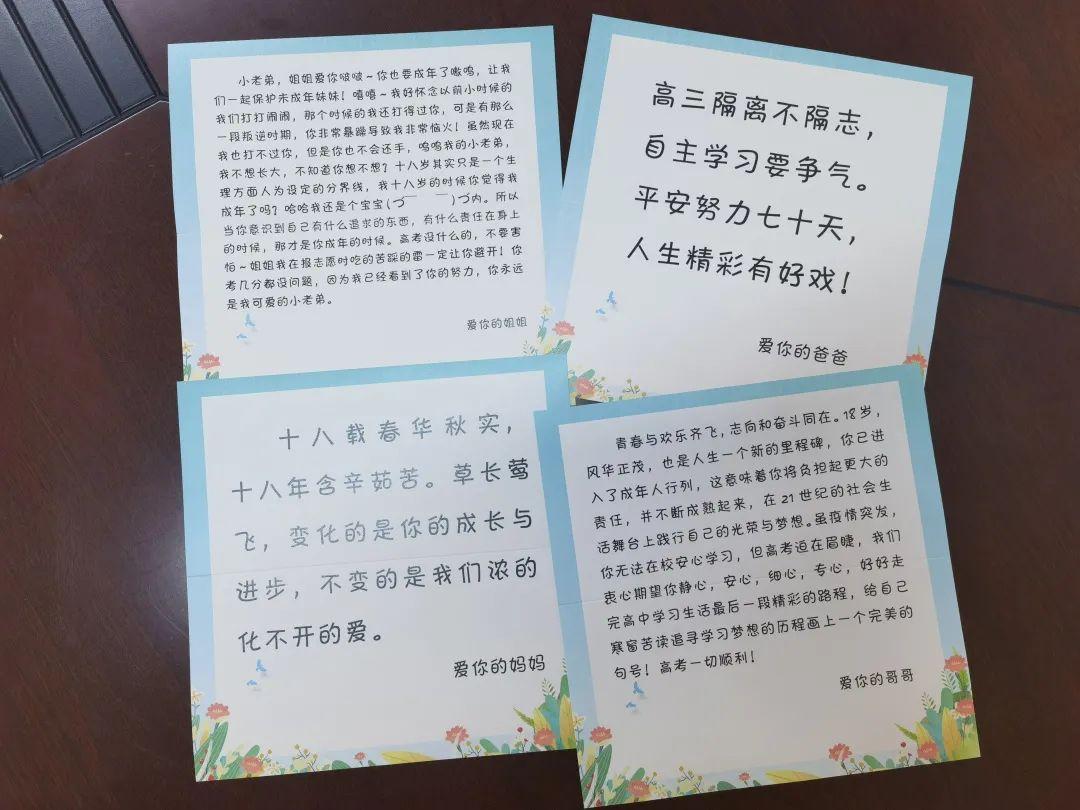 小老弟，姐姐爱你啵啵~你也要成年了嗷呜，让我
们一起保护未成年妹妹！嘻嘻~我好怀念以前小时候的
我们打打闹闹，那个时候的我还打得过你，可是有那么
一段叛逆时期，你非常暴躁导致我非常恼火！虽然现在
我也打不过你，但是你也不会还手，呜呜我的小老弟，
我不想长大，不知道你想不想？十八岁其实只是一个生
理方面人为设定的分界线，我十八岁的时候你觉得我
成年了吗？哈哈我还是个宝宝(づ￣ ￣)づ内。所以
当你意识到自己有什么追求的东西，有什么责任在身上
的时候，那才是你成年的时候。高考没什么的，不要害
怕~姐姐我在报志愿时吃的苦踩的雷一定让你避开！你
考几分都没问题，因为我已经看到了你的努力，你永远
是我可爱的小老弟。
爱你的姐姐
高三隔离不隔志，
自主学习要争气。
平安努力七十天，
人生精彩有好戏！
爱你的爸爸
十八载春华秋实，
十八年含辛茹苦。草长莺
飞，变化的是你的成长与
进步，不变的是我们浓的
化不开的爱。
爱你的妈妈
青春与欢乐齐飞，志向和奋斗同在。18岁，
风华正茂，也是人生一个新的里程碑，你已进
入了成年人行列，这意味着你将负担起更大的
责任，并不断成熟起来，在21世纪的社会生
话舞台上践行自己的光荣与梦想。虽疫情突发，
你无法在校安心学习，但高考迫在眉睫，我们
衷心期望你静心，安心，细心，专心，好好走
完高中学习生活最后一段精彩的路程，给自己
寒窗苦读追寻学习梦想的历程画上一个完美的
句号！高考一切顺利！
爱你的哥哥